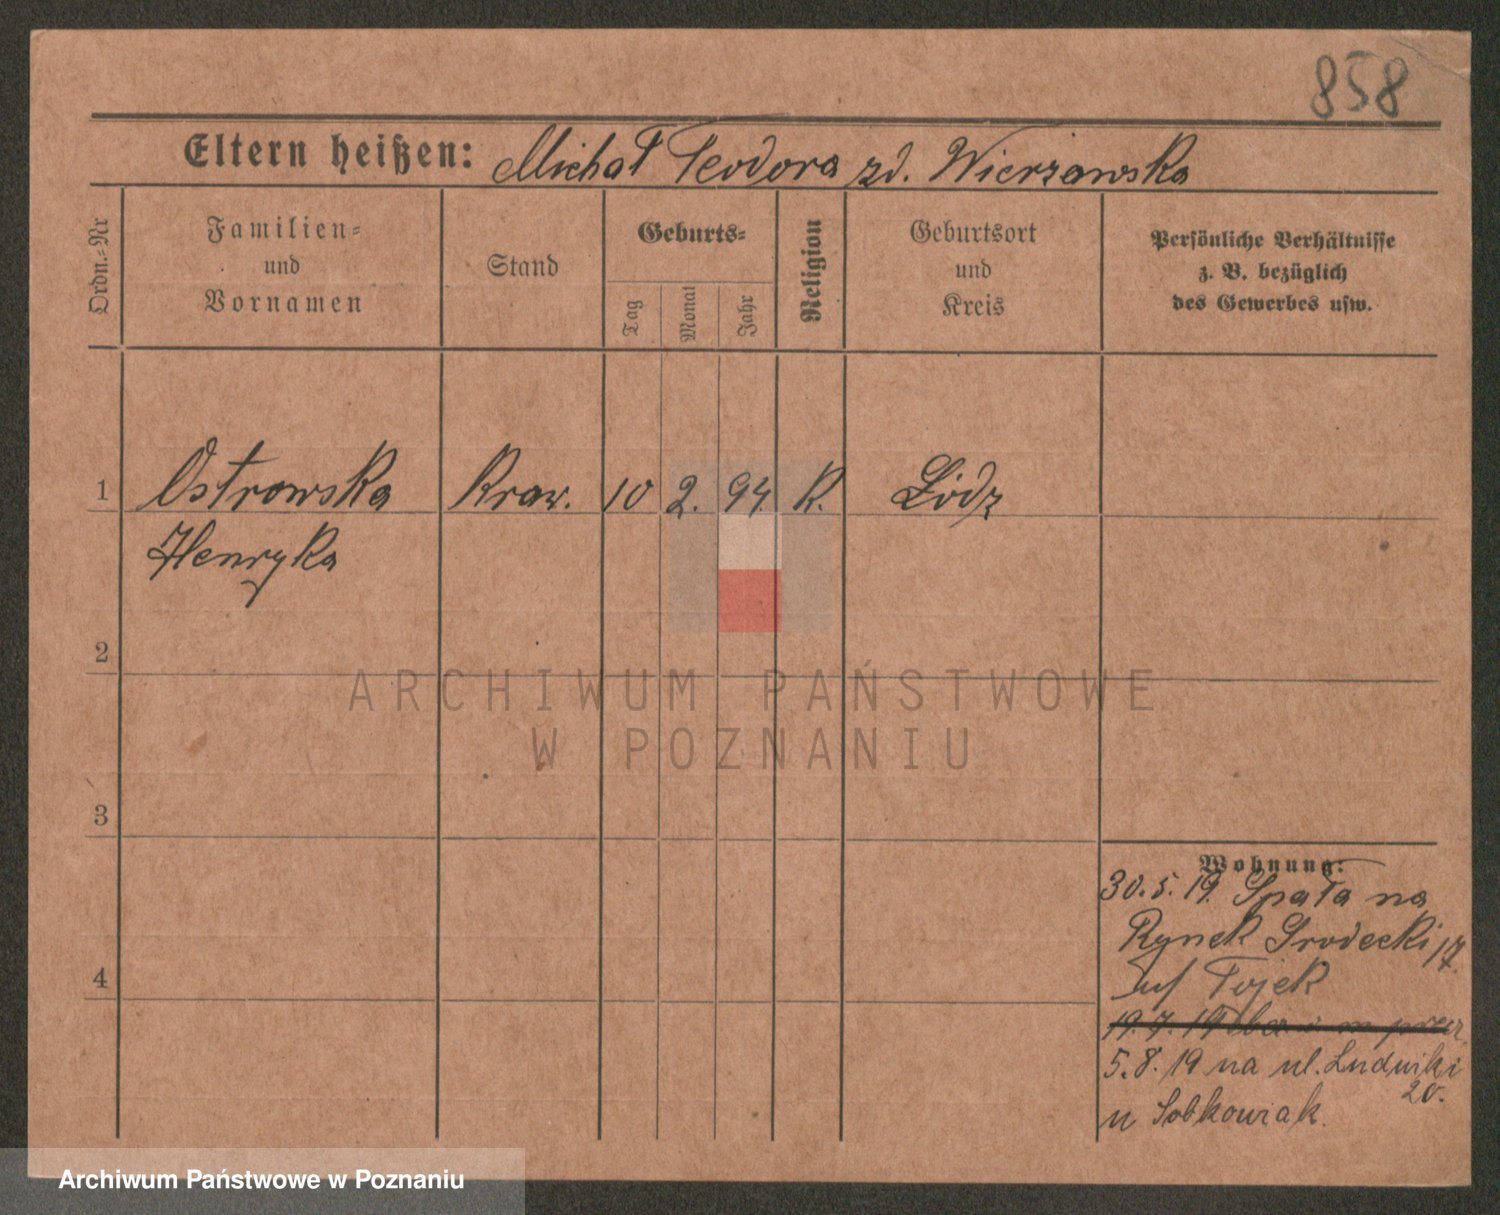 858
Eltern heißen: Michał Teodora zd. Wierzawska
Ordn.-Nr
Familien-
und
Vornamen
Stand
Geburts-
Tag
Monat
Jahr
Religion
Geburtsort
und
Kreis
Persönliche Verhältnisse
z. B. bezüglich
des Gewerbes usw.
1 Ostrowska Kraw. 10 2. 94. K. Łódz
Henryka
2
ARCHIWUM PAŃSTWOWE
W POZNANIU
3
Wohnung:
30.5.19. Spała na
Rynek Srodecki 17.
Tojek
4
19.7.19
5.8.19 na ul. Ludwiki
20.
u Sobkowiak.
Archiwum Państwowe w Poznaniu